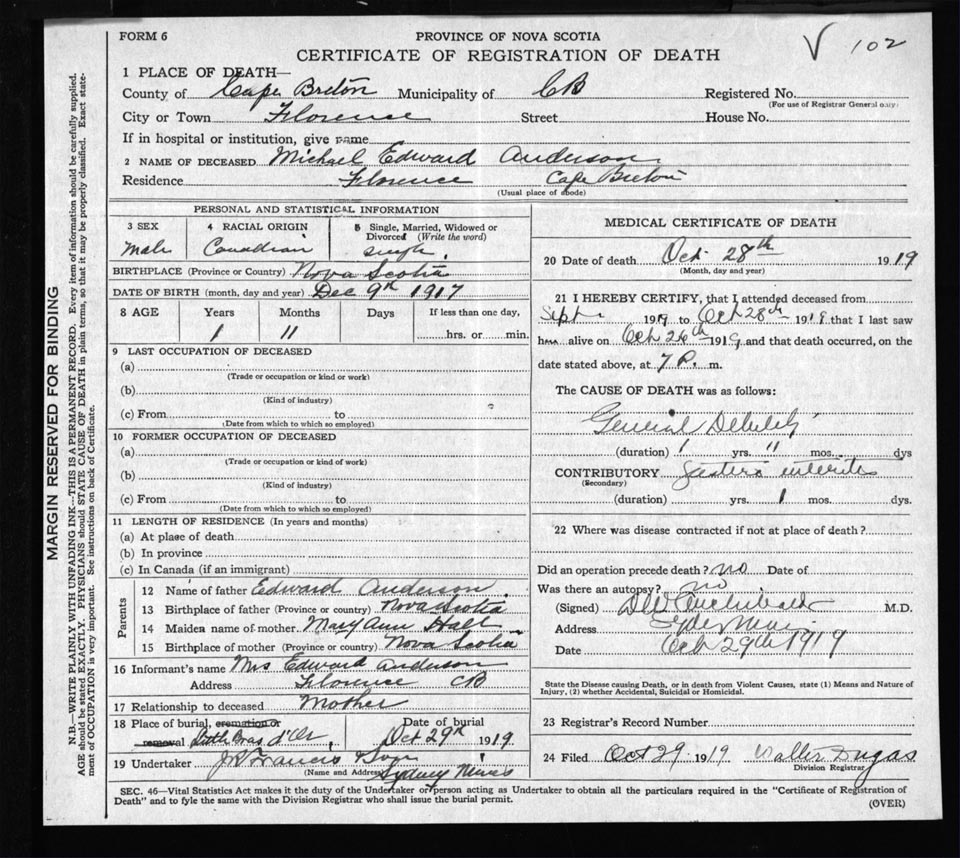 FORM 6
PROVINCE OF NOVA SCOTIA
CERTIFICATE OF REGISTRATION OF DEATH
V 102
1 PLACE OF DEATH—
County of Cape Breton Municipality of CB Registered No.
(For use of Registrar General only)
City or Town Florence Street House No.
If in hospital or institution, give name
2 NAME OF DECEASED Michael Edward Anderson
Residence Florence Cape Breton
(Usual place of abode)
PERSONAL AND STATISTICAL INFORMATION
3 SEX 4 RACIAL ORIGIN 5 Single, Married, Widowed or
Divorced (Write the word)
Male Canadian single
BIRTHPLACE (Province or Country) Nova Scotia
DATE OF BIRTH (month, day and year) Dec 9th 1917
8 AGE Years Months Days If less than one day,
1 11 hrs. or min.
9 LAST OCCUPATION OF DECEASED
(a)
(Trade or occupation or kind or work)
(b)
(Kind of industry)
(c) From to
(Date from which to which so employed)
10 FORMER OCCUPATION OF DECEASED
(a)
(Trade or occupation or kind of work)
(b)
(Kind of industry)
(c) From to
(Date from which to which so employed)
11 LENGTH OF RESIDENCE (In years and months)
(a) At place of death
(b) In province
(c) In Canada (if an immigrant)
Parents
12 Name of father Edward Anderson
13 Birthplace of father (Province or country) Nova Scotia
14 Maiden name of mother Mary Ann Hall
15 Birthplace of mother (Province or country) Nova Scotia
16 Informant's name Mrs Edward Anderson
Address Florence CB
17 Relationship to deceased Mother
18 Place of burial, cremation or Date of burial
removal Little Bras d'Or, Oct 29th 1919
19 Undertaker J Francis
(Name and Address) Sydney Mines
MEDICAL CERTIFICATE OF DEATH
20 Date of death Oct 28th 1919
(Month, day and year)
21 I HEREBY CERTIFY, that I attended deceased from
Sept 1919 to Oct 28th 1919 that I last saw
h alive on Oct 26th 1919 and that death occurred, on the
date stated above, at 7 P. m.
The CAUSE OF DEATH was as follows:
General Debility
(duration) 1 yrs. 11 mos. dys
CONTRIBUTORY Gastero enteritis
(Secondary)
(duration) yrs. 1 mos. dys.
22 Where was disease contracted if not at place of death?
Did an operation precede death? no Date of
Was there an autopsy? no
(Signed) Archibald M.D.
Address Syd Mines
Date Oct 29th 1919
State the Disease causing Death, or in death from Violent Causes, state (1) Means and Nature of
Injury, (2) whether Accidental, Suicidal or Homicidal.
23 Registrar's Record Number
24 Filed Oct 29 1919 Walter Dugas
Division Registrar
SEC. 46—Vital Statistics Act makes it the duty of the Undertaker or person acting as Undertaker to obtain all the particulars required in the "Certificate of Registration of
Death" and to fyle the same with the Division Registrar who shall issue the burial permit.
(OVER)
MARGIN RESERVED FOR BINDING
N.B.—WRITE PLAINLY WITH UNFADING INK—THIS IS A PERMANENT RECORD. Every item of information should be carefully supplied.
AGE should be stated EXACTLY. PHYSICIANS should STATE CAUSE OF DEATH in plain terms, so that it may be properly classified. Exact state-
ment of OCCUPATION is very important. See instructions on back of Certificate.